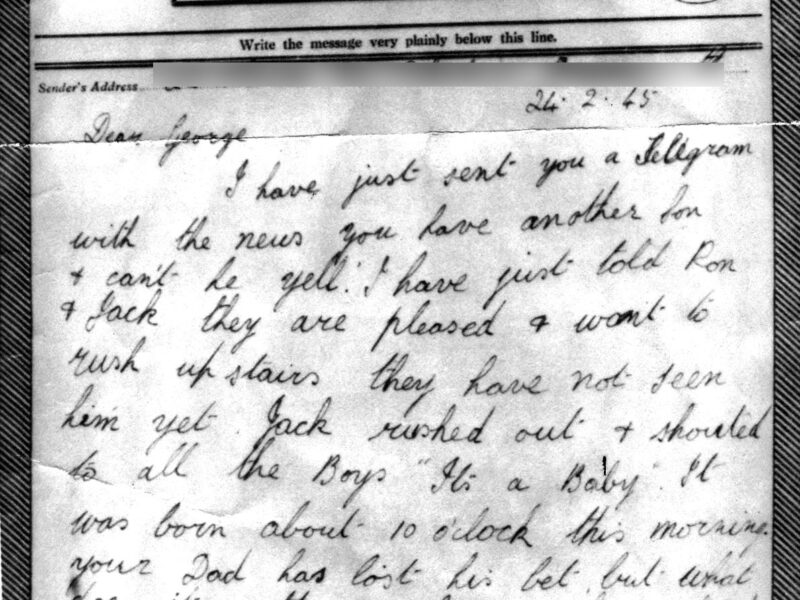 Write the message very plainly below this line.
Sender's Address
24. 2. 45
Dear George
I have just sent you a Telegram
with the news you have another Son
& can't he yell! I have just told Ron
& Jack they are pleased & want to
rush upstairs they have not seen
him yet. Jack rushed out & shouted
to all the Boys "Its a Baby". It
was born about 10 o'clock this morning.
your Dad has lost his bet, but what